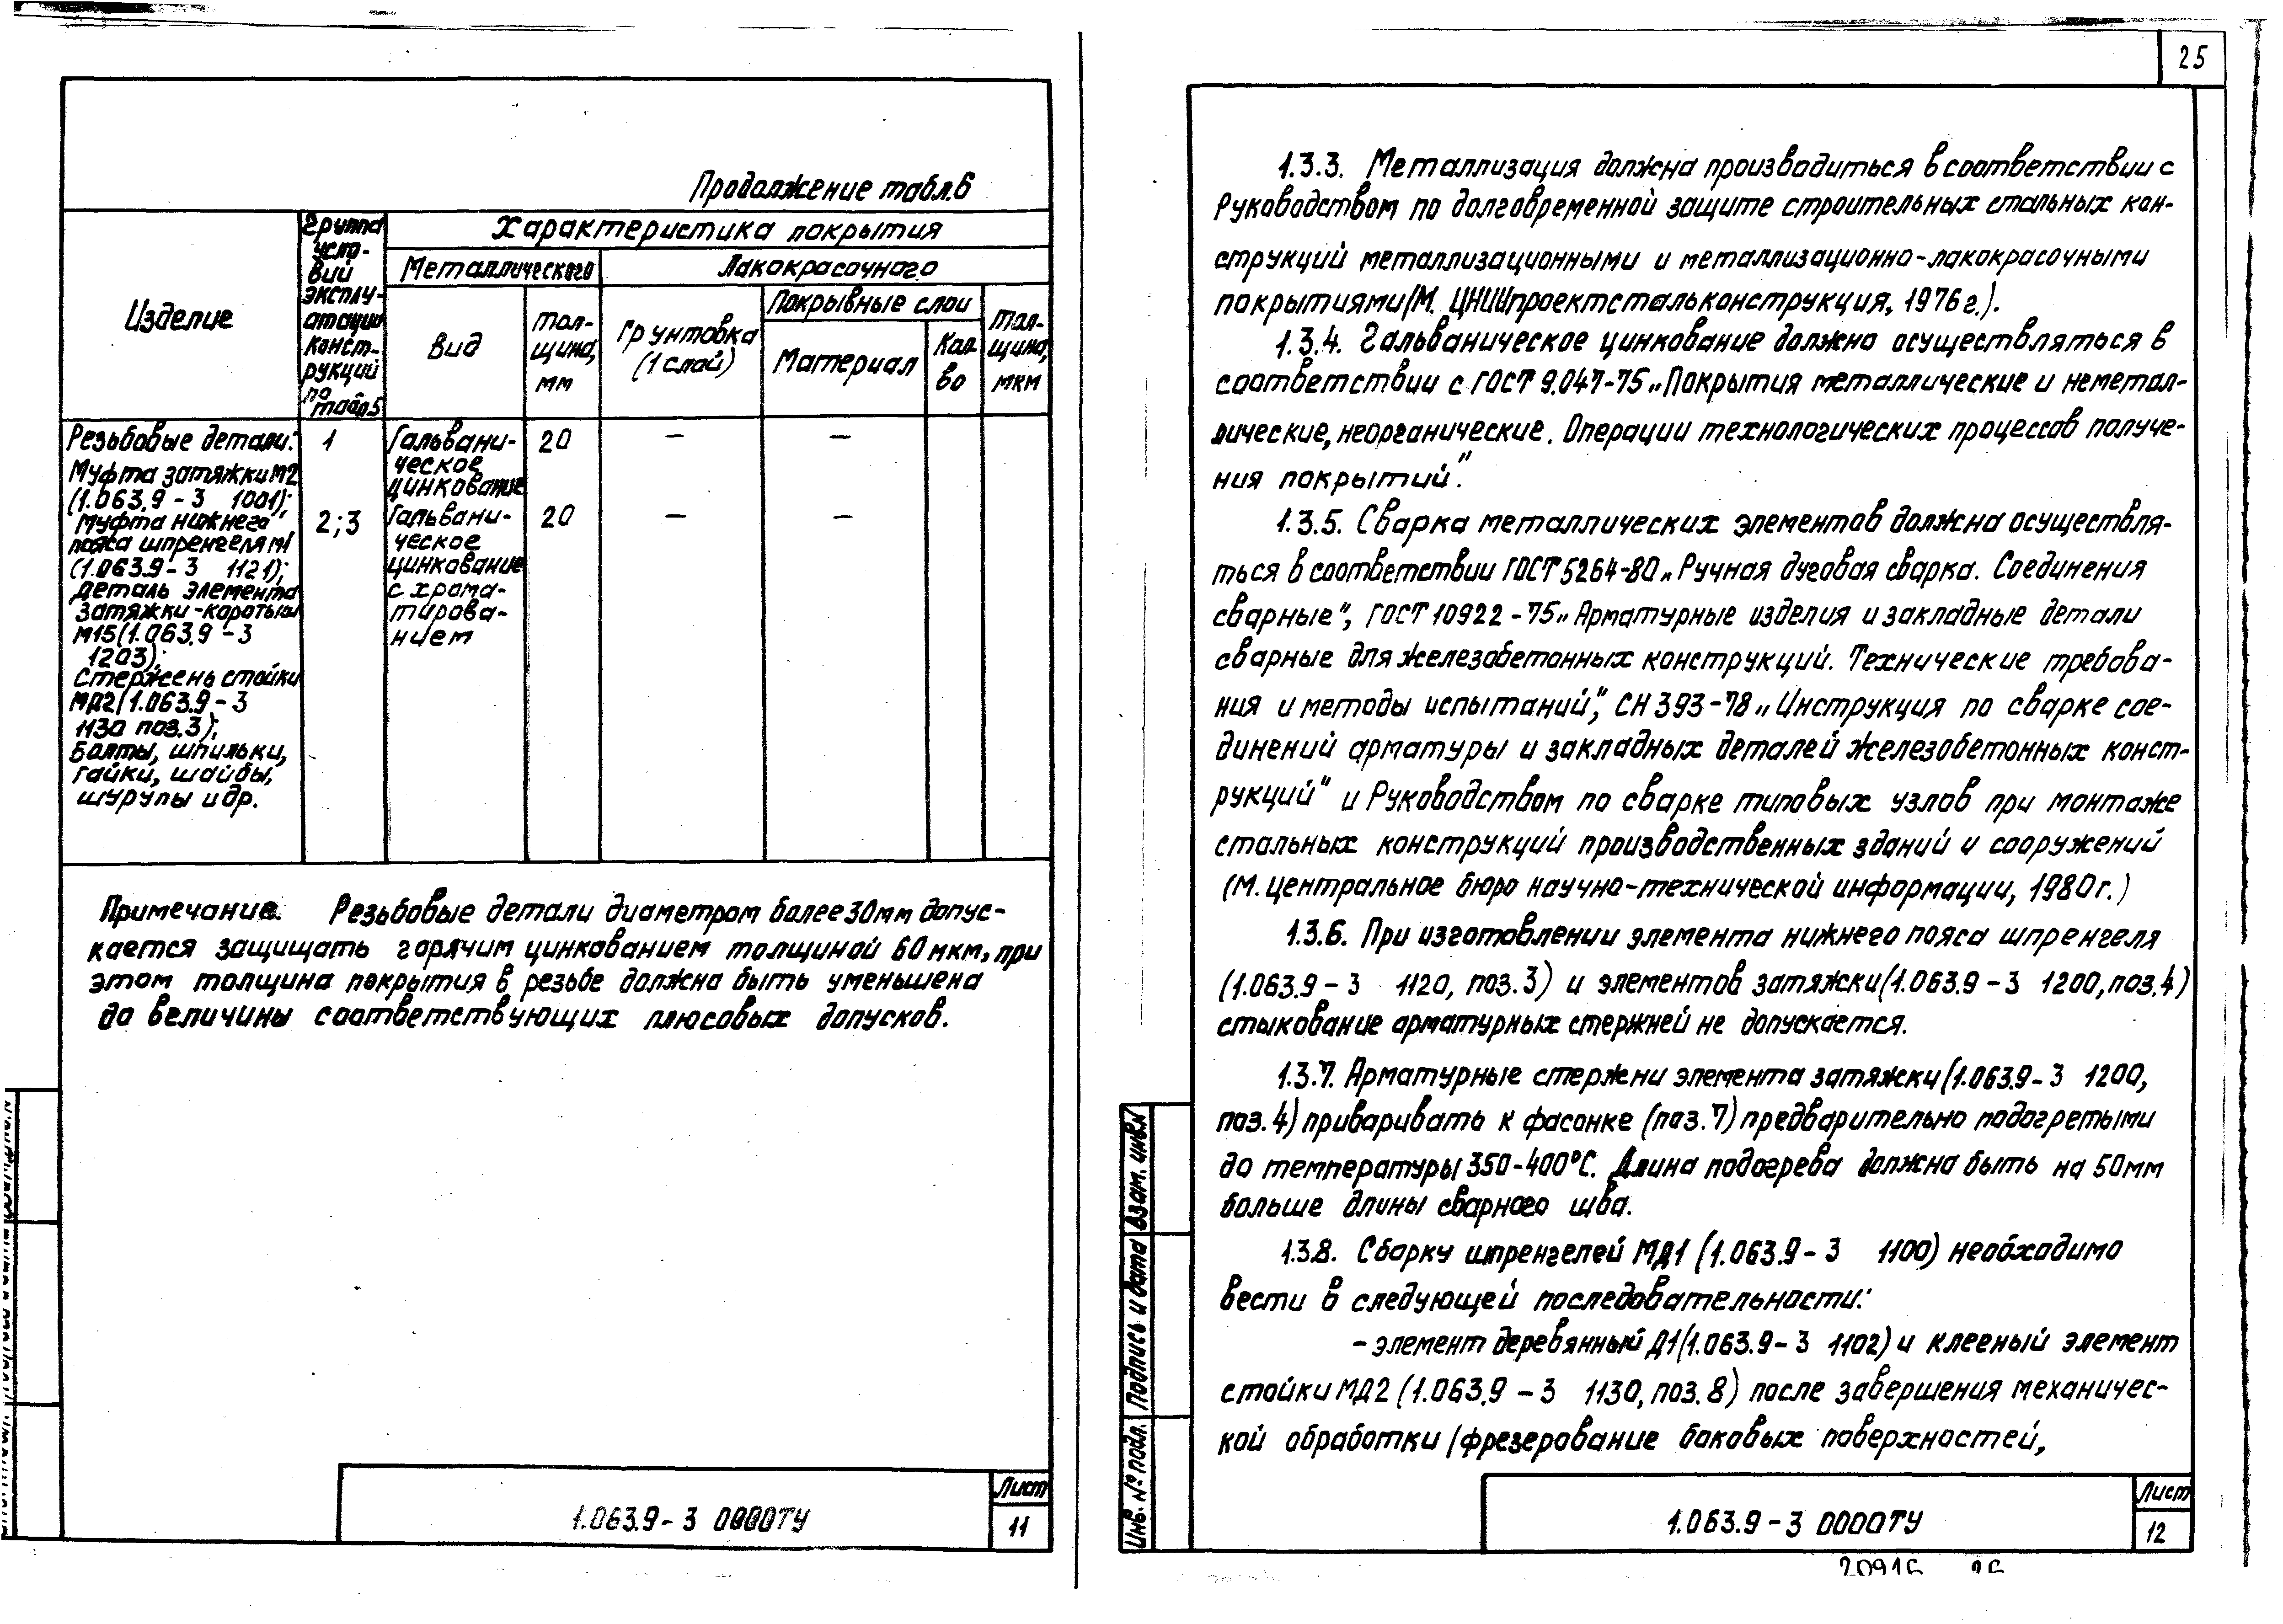 Продолжение табл.6
Изделие
Группа усло-
вий
эксплу-
атации
конст-
рукций
по
табл.5
Характеристика покрытия
Металлического
Лакокрасочного
Вид
Тол-
щина,
мм
Грунтовка
(1 слой)
Покрывные слои
Материал
Кол-
во
Тол-
щина,
мкм
Резьбовые детали:
Муфта затяжки М2
(1.063.9-3 1001);
Муфта нижнего
пояса шпренгеля М1
(1.063.9-3 1121);
Деталь элемента
затяжки-коротыш
М15(1.063.9-3
1203);
Стержень стойки
МД2(1.063.9-3
1130 поз.3);
Болты, шпильки,
гайки, шайбы,
шурупы и др.
1
Гальвани-
ческое
цинкование
20
—
—
2;3
Гальвани-
ческое
цинкование
с хрома-
тирова-
нием
20
—
—
Примечание. Резьбовые детали диаметром более 30мм допус-
кается защищать горячим цинкованием толщиной 60 мкм, при
этом толщина покрытия в резьбе должна быть уменьшена
до величины соответствующих плюсовых допусков.
1.063.9-3 0000ТУ
Лист
11
25
1.3.3. Металлизация должна производиться в соответствии с
Руководством по долговременной защите строительных стальных кон-
струкций металлизационными и металлизационно-лакокрасочными
покрытиями (М. ЦНИИпроектстальконструкция, 1976г.).
1.3.4. Гальваническое цинкование должно осуществляться в
соответствии с ГОСТ 9.047-75 „Покрытия металлические и неметал-
лические, неорганические. Операции технологических процессов получе-
ния покрытий".
1.3.5. Сварка металлических элементов должна осуществля-
ться в соответствии ГОСТ 5264-80 „Ручная дуговая сварка. Соединения
сварные", ГОСТ 10922-75 „Арматурные изделия и закладные детали
сварные для железобетонных конструкций. Технические требова-
ния и методы испытаний", СН 393-78 „Инструкция по сварке сое-
динений арматуры и закладных деталей железобетонных конст-
рукций" и Руководством по сварке типовых узлов при монтаже
стальных конструкций производственных зданий и сооружений
(М. центральное бюро научно-технической информации, 1980г.)
1.3.6. При изготовлении элемента нижнего пояса шпренгеля
(1.063.9-3 1120, поз.3) и элементов затяжки (1.063.9-3 1200, поз.4)
стыкование арматурных стержней не допускается.
1.3.7. Арматурные стержни элемента затяжки (1.063.9-3 1200,
поз.4) приваривать к фасонке (поз.7) предварительно подогретыми
до температуры 350-400°С. Длина подогрева должна быть на 50мм
больше длины сварного шва.
1.3.8. Сборку шпренгелей МД1 (1.063.9-3 1100) необходимо
вести в следующей последовательности:
- элемент деревянный Д1 (1.063.9-3 1102) и клееный элемент
стойки МД2 (1.063.9-3 1130, поз.8) после завершения механичес-
кой обработки (фрезерование боковых поверхностей,
Взам. инв.№
Подпись и дата
Инв. № подл.
1.063.9-3 0000ТУ
Лист
12